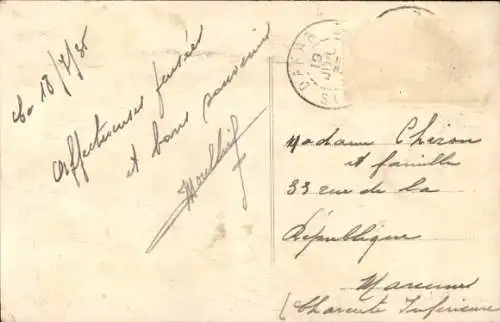 le 18/7/35
Affectueuses pensées
et bons souvenirs
Madame Chiron
et famille
33 rue de la
République
Marennes
(Charente Inférieure